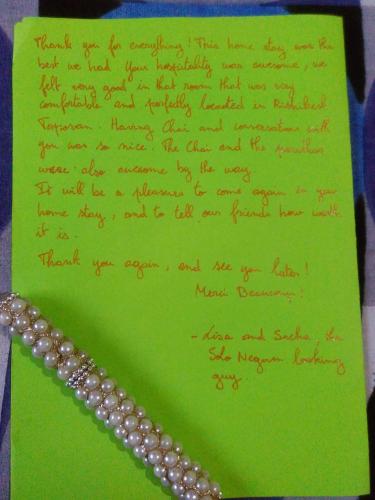 Thank you for everything! This home stay was the
best we had. Your hospitality was awesome, we
felt very good in that room that was very
comfortable and perfectly located in Rishikesh
Tapovan. Having Chai and conversations with
you was so nice. The Chai and the parathas
were also awesome by the way.
It will be a pleasure to come again in your
home stay, and to tell our friends how worth
it is.
Thank you again, and see you later!
Merci Beaucoup!
- Lisa and Sacha, the
Solo Negam looking
guy.